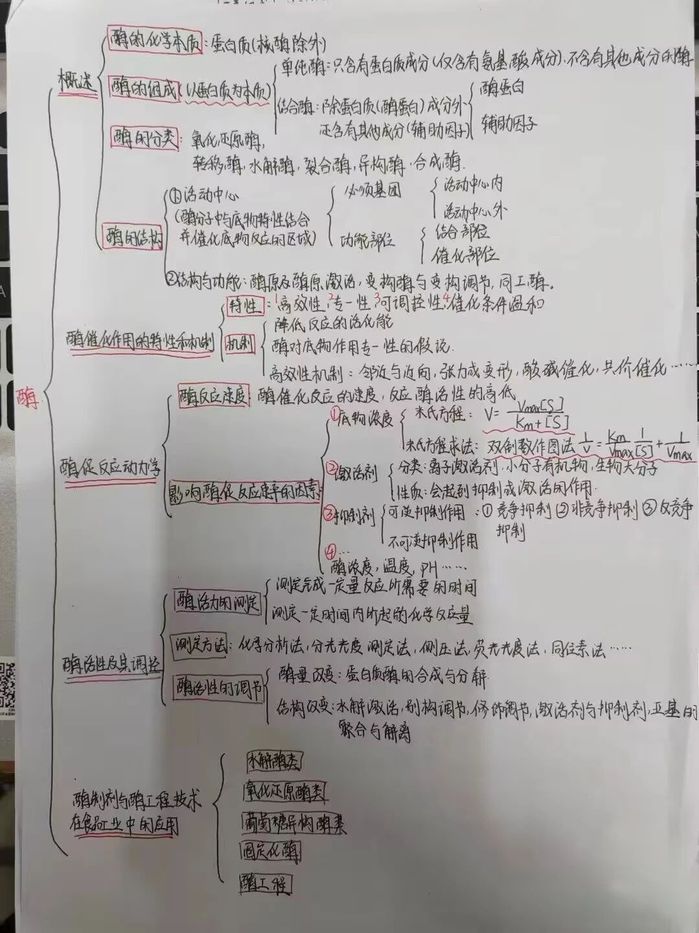 酶
概述
酶的化学本质：蛋白质(核酶除外)
酶的组成(以蛋白质为本质)
单纯酶：只含有蛋白质成分(仅含有氨基酸成分)，不含有其他成分的酶
结合酶：除蛋白质(酶蛋白)成分外
还含有其他成分(辅助因子)
酶蛋白
辅助因子
酶的分类：氧化还原酶，
转移酶，水解酶，裂合酶，异构酶，合成酶．
酶的结构
①活动中心
(酶分子中与底物特性结合
并催化底物反应的区域)
必须基团
活动中心内
活动中心外
功能部位
结合部位
催化部位
②结构与功能：酶原及酶原激活，变构酶与变构调节，同工酶．
酶催化作用的特性和机制
特性：1高效性，2专一性3可调控性4催化条件温和
机制
降低反应的活化能
酶对底物作用专一性的假说．
高效性机制：邻近与定向，张力或变形，酸碱催化，共价催化……
酶促反应动力学
酶反应速度：酶催化反应的速度，反应酶活性的高低
影响酶促反应速率的因素
①底物浓度
米氏方程：V=Vmax[S]/Km+[S]
米氏方程求法：双倒数作图法 1/V=Km/Vmax 1/[S]+1/Vmax
②激活剂
分类：离子激活剂．小分子有机物，生物大分子
性质：会起到抑制或激活的作用．
③抑制剂
可逆抑制作用：①竞争抑制②非竞争抑制③反竞争
抑制
不可逆抑制作用
④…
酶浓度，温度，PH……
酶活性及其调控
酶活力的测定
测定完成一定量反应所需要的时间
测定一定时间内所起的化学反应量
测定方法：化学分析法，分光光度测定法，侧压法，荧光光度法，同位素法……
酶活性的调节
酶量改变：蛋白质酶的合成与分解
结构改变：水解激活，别构调节，修饰调节，激活剂与抑制剂，亚基的
聚合与解离
酶制剂与酶工程技术
在食品工业中的应用
水解酶类
氧化还原酶类
葡萄糖异构酶类
固定化酶
酶工程